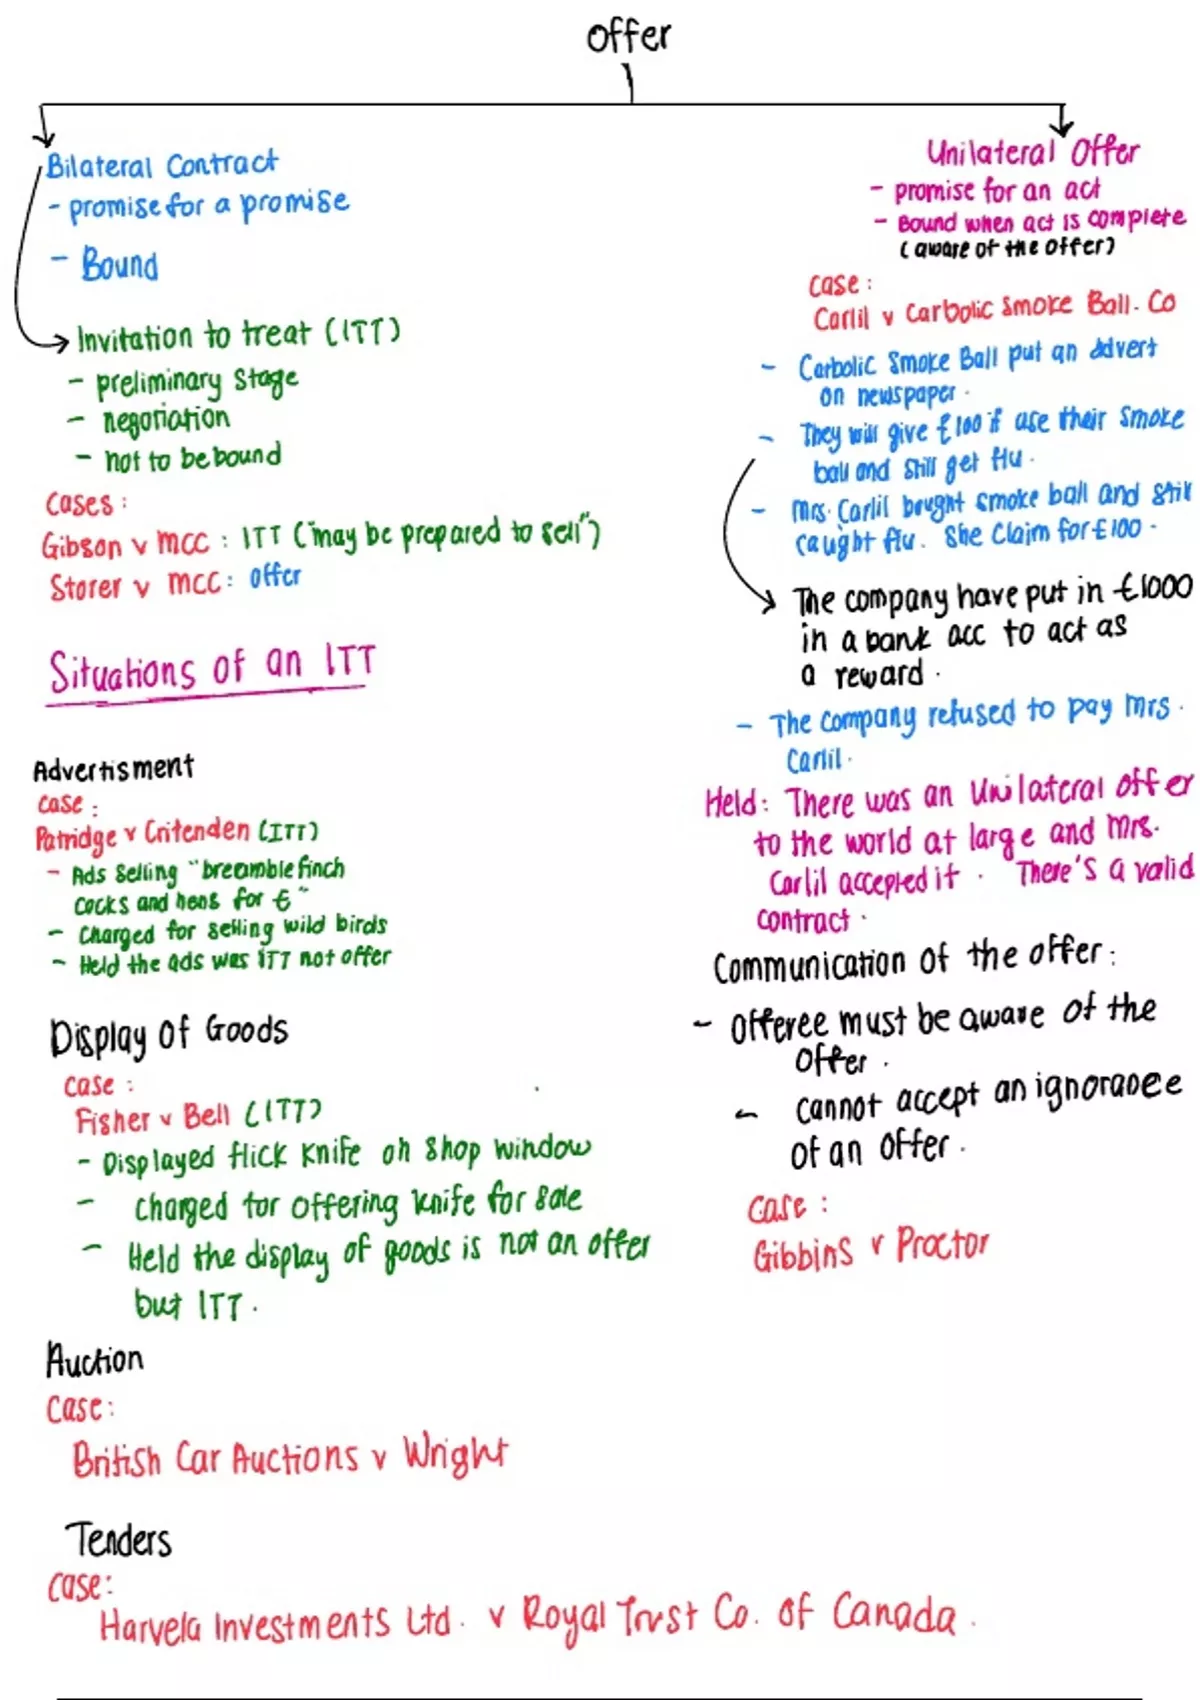 Offer
Bilateral Contract
- promise for a promise
- Bound
Invitation to treat (ITT)
- preliminary stage
- negotiation
- not to be bound
Cases:
Gibson v MCC: ITT ("may be prepared to sell")
Storer v MCC: Offer
Situations of an ITT
Advertisment
Case:
Patridge v Critenden (ITT)
- Ads selling "breamble finch
cocks and hens for £"
- Charged for selling wild birds
- Held the ads was ITT not offer
Display of Goods
Case:
Fisher v Bell (ITT)
- Displayed flick knife on shop window
- charged for offering knife for sale
- Held the display of goods is not an offer
but ITT.
Auction
Case:
British Car Auctions v Wright
Tenders
Case:
Harvela Investments Ltd. v Royal Trust Co. of Canada.
Unilateral Offer
- promise for an act
- Bound when act is complete
(aware of the offer)
Case:
Carlil v Carbolic Smoke Ball. Co
- Carbolic Smoke Ball put an advert
on newspaper.
- They will give £100 if use their smoke
ball and still get flu.
- Mrs. Carlil bought smoke ball and still
caught flu. She claim for £100.
The company have put in £1000
in a bank acc to act as
a reward.
- The company refused to pay Mrs.
Carlil.
Held: There was an Unilateral offer
to the world at large and Mrs.
Carlil accepted it. There's a valid
contract.
Communication of the offer:
- Offeree must be aware of the
offer.
- cannot accept an ignorance
of an offer.
Case:
Gibbins v Proctor